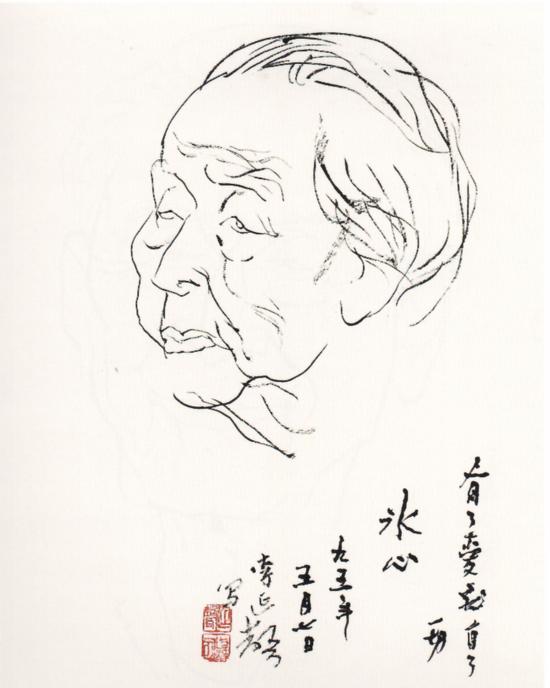 有了愛就有了
一切
冰心
九三年
五月七日
李延聲
写